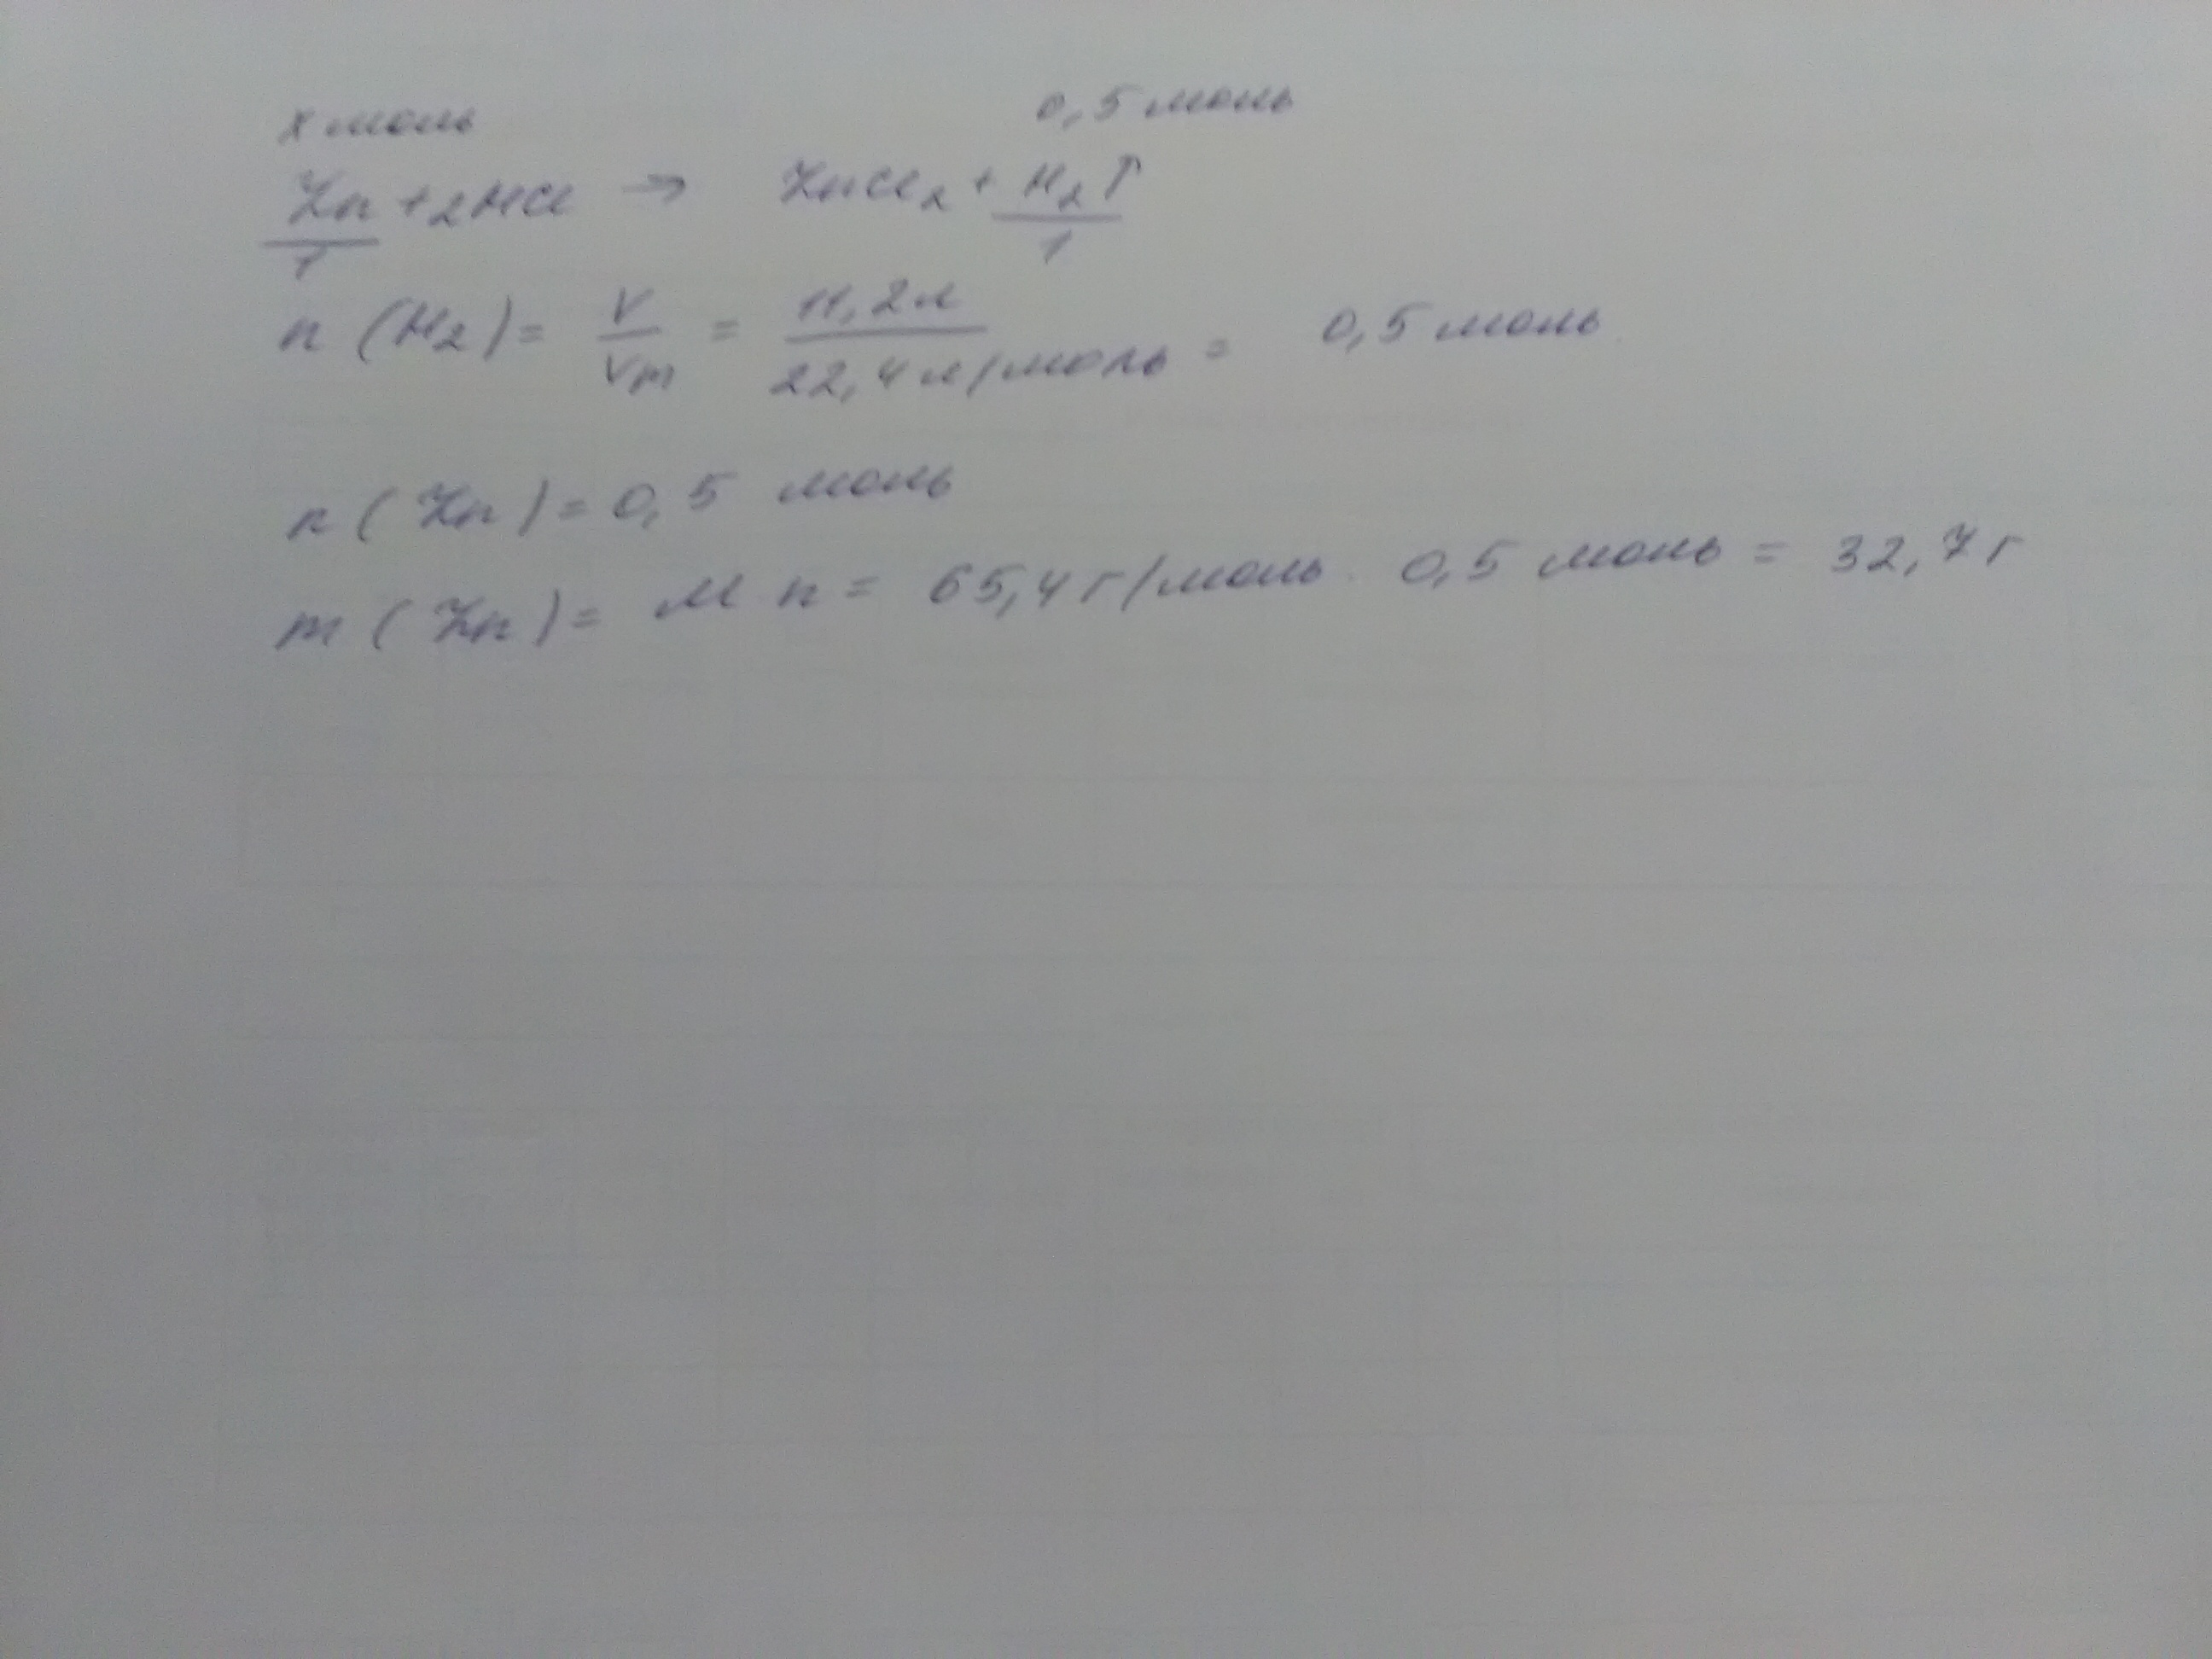 x моль 0,5 моль
Zn + 2HCl → ZnCl₂ + H₂↑
1 1
n (H₂) = V/Vm = 11,2 л / 22,4 л/моль = 0,5 моль
n (Zn) = 0,5 моль
m (Zn) = M · n = 65,4 г/моль · 0,5 моль = 32,7 г